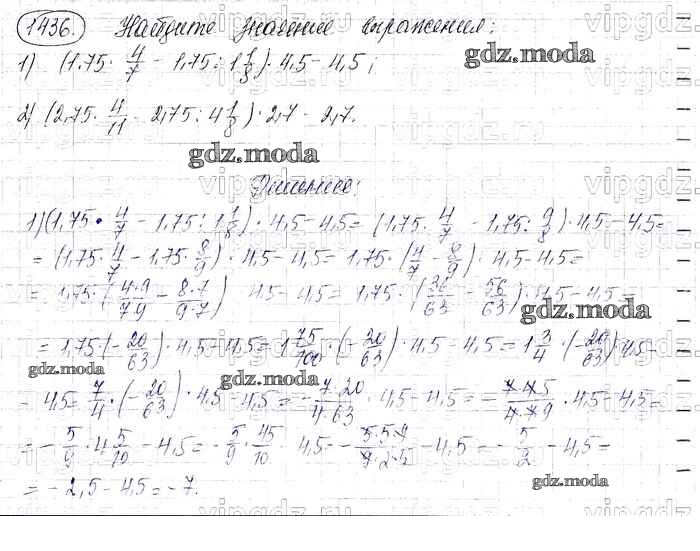 1436. Найдите значение выражения:
1) (1,75 · 4/7 - 1,75 : 1 1/8) · 4,5 - 4,5;
2) (2,75 · 4/11 - 2,75 : 4 1/8) · 2,7 - 2,7.
Решение:
1) (1,75 · 4/7 - 1,75 : 1 1/8) · 4,5 - 4,5 = (1,75 · 4/7 - 1,75 : 9/8) · 4,5 - 4,5 =
= (1,75 · 4/7 - 1,75 · 8/9) · 4,5 - 4,5 = 1,75 · (4/7 - 8/9) · 4,5 - 4,5 =
= 1,75 · (4·9/7·9 - 8·7/9·7) 4,5 - 4,5 = 1,75 · (36/63 - 56/63) · 4,5 - 4,5 =
= 1,75 · (- 20/63) · 4,5 - 4,5 = 1 75/100 · (- 20/63) · 4,5 - 4,5 = 1 3/4 · (- 20/63) · 4,5 -
- 4,5 = 7/4 · (- 20/63) · 4,5 - 4,5 = - 7·20/4·63 · 4,5 - 4,5 = - 7·4·5/4·7·9 · 4,5 - 4,5 =
= - 5/9 · 4 5/10 - 4,5 = - 5/9 · 45/10 - 4,5 = - 5·5·9/9·2·5 - 4,5 = - 5/2 - 4,5 =
= - 2,5 - 4,5 = - 7.
gdz.moda
gdz.moda
gdz.moda
gdz.moda
gdz.moda
gdz.moda